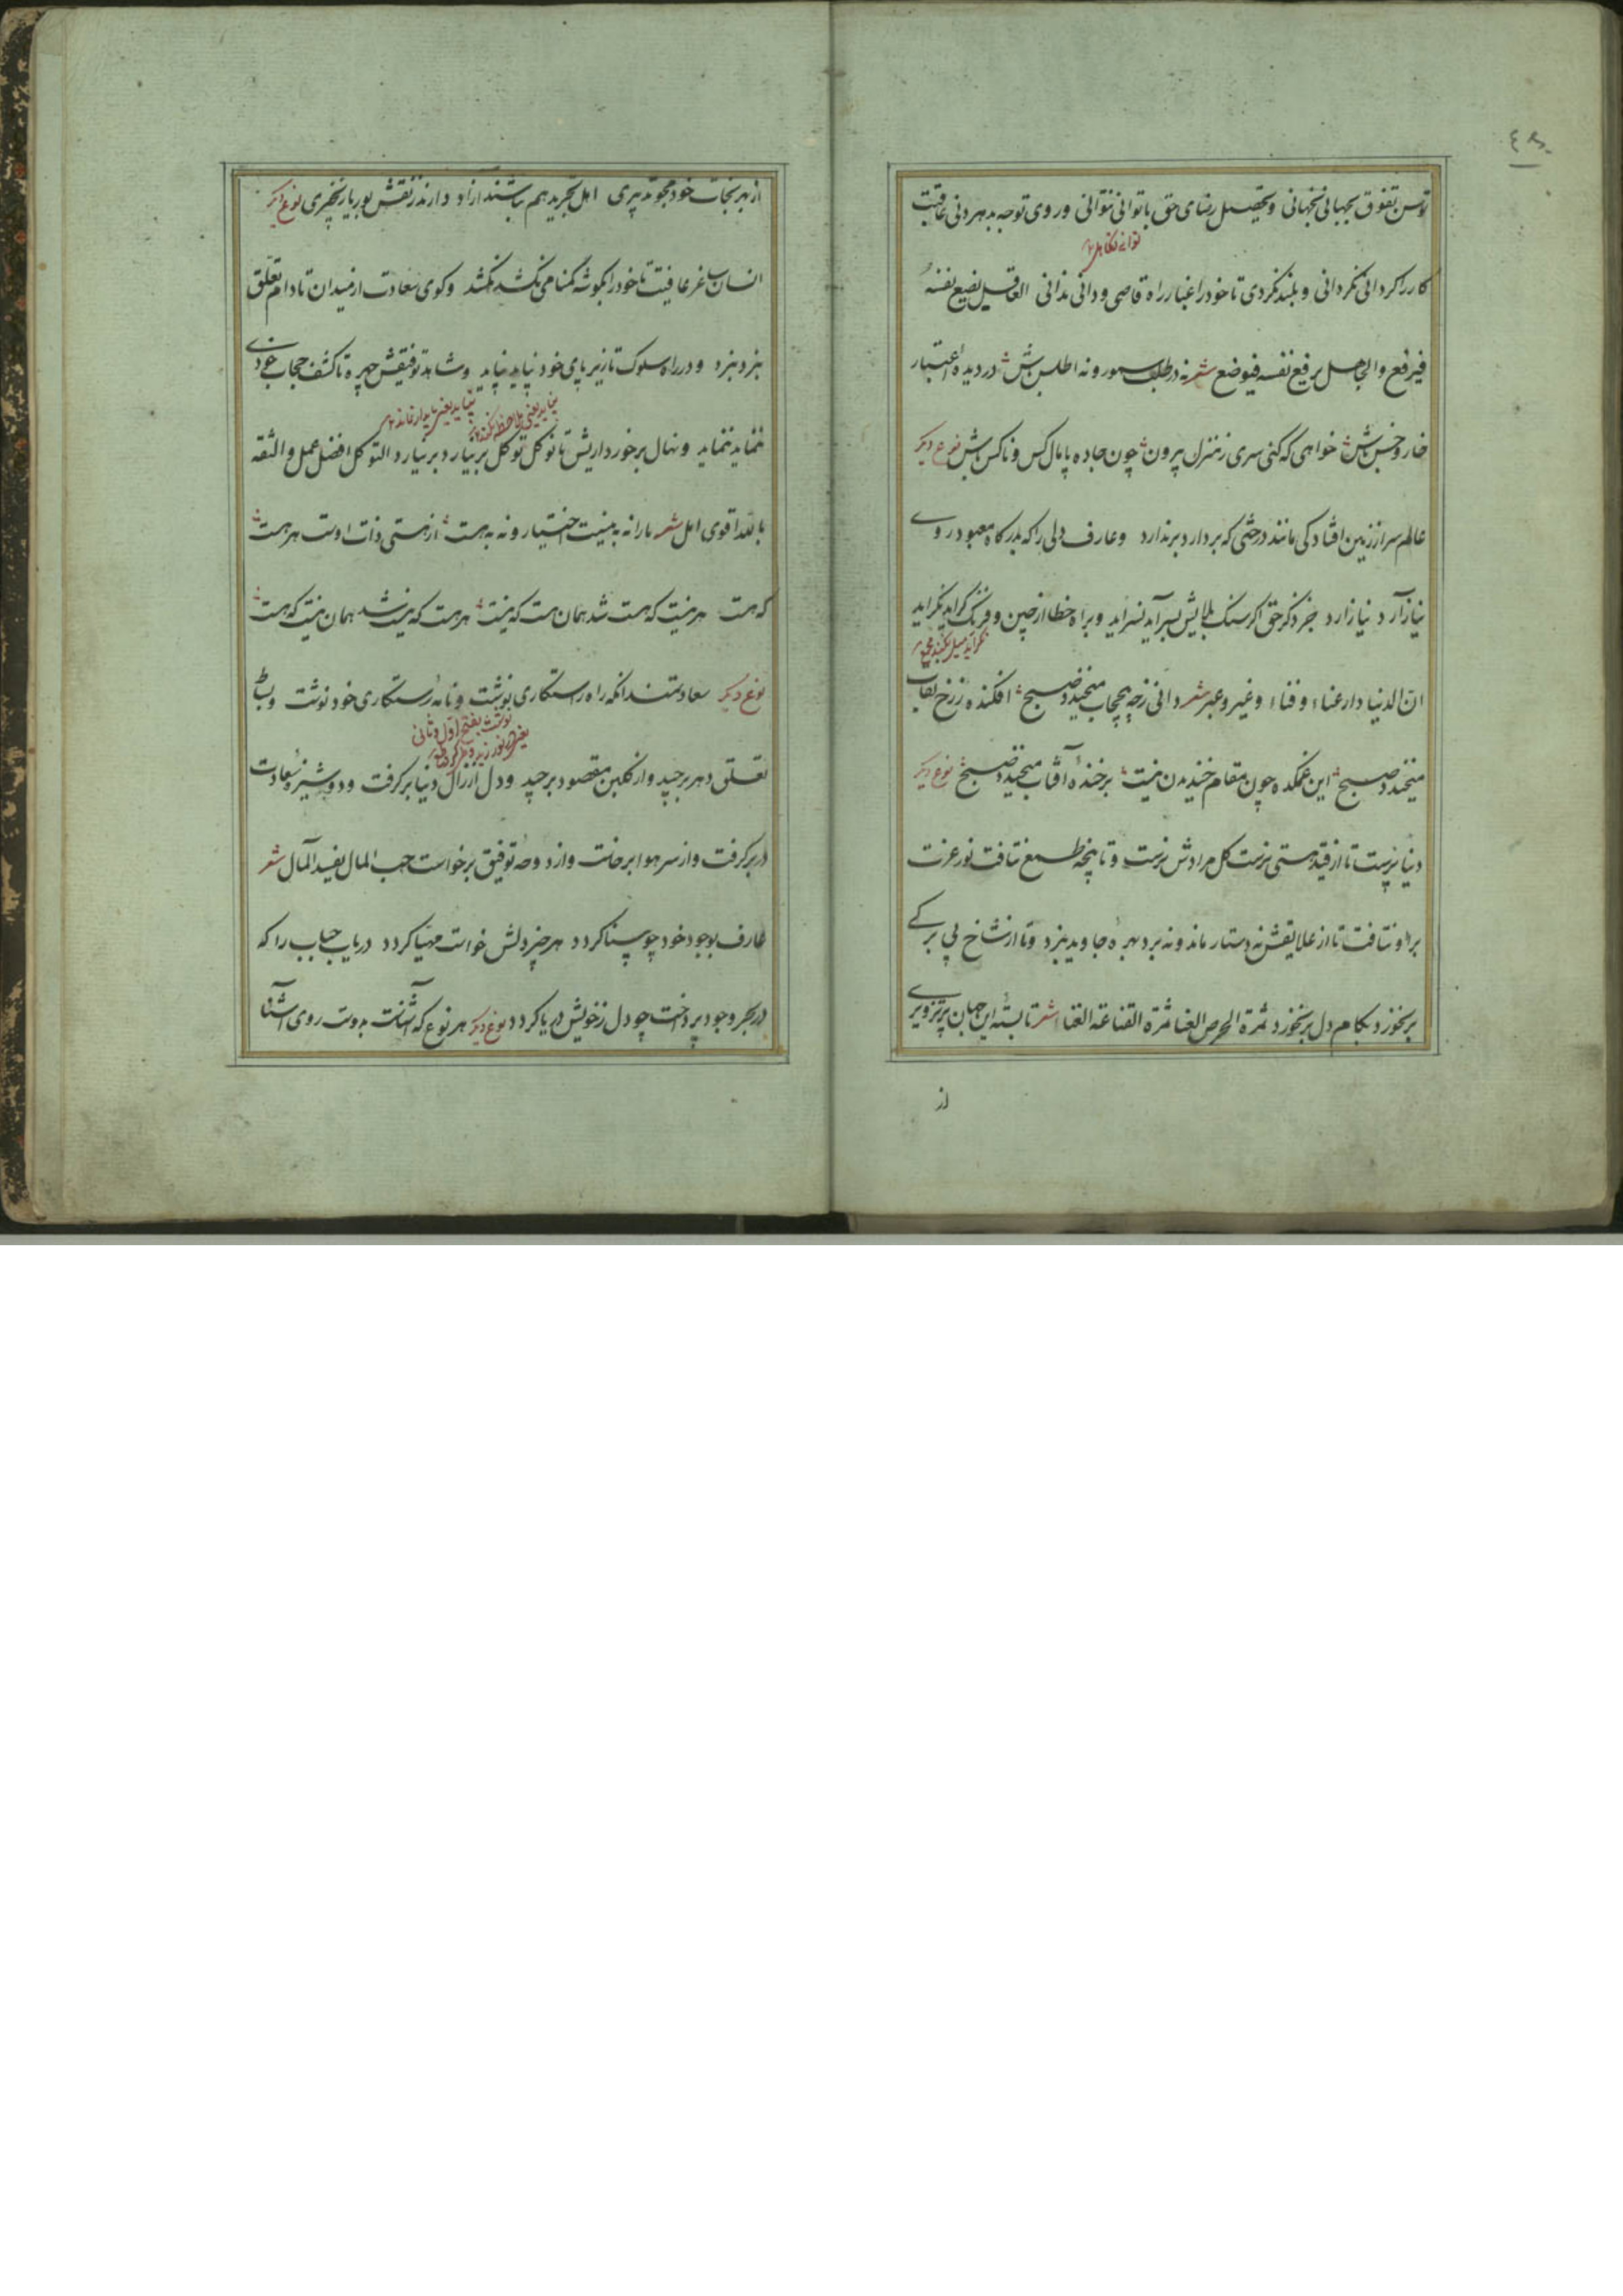 توسن تفوق نجهبانی نجهانی و تحصیل رضای حق باتوانی نتوانی و روی توجه بدهر دنی عاقبت
کار را کردانی نکردانی و بلند نکردی تا خود را غبار راه قاصی و دانی ندانی العاقل یضیع نفسه
فیرفع والجاهل یرفع نفسه فیوضع شعر نه در طلب سمور و نه اطلس باش در دیده اعتبار
خار و خس باش خواهی که کنی سری ز منزل بیرون چون جاده پامال کس و ناکس باش نوع دیکر
عالم سر از زمین افتادکی مانند درختی که بر دارد برندارد و عارف دلی را که بدرکاه معبود روی
نیاز آرد نیازارد جز ذکر حق اکر سنک بلایش بسر آید نسراید و براه خطا از چین و فرنک کراید نکراید
ان الدنیا دار عناء و فناء و غیر و عبر شعر دانی ز چه بیحجاب میخندد صبح افکنده ز رخ نقاب
میخندد صبح این غمکده چون مقام خندیدن نیست بر خندهٔ آفتاب میخندد صبح نوع دیکر
دنیا پرست تا از قید هستی نرست کل مرادش نرست و تا پنجه طمع نتافت نور عزت
برو نتافت تا از علایقش نه دستار ماند و نه برد بهرهٔ جاوید نبرد و تا از شاخ بی برکی
بر نخورد بکام دل بر نخورد ثمرة الحرص العنا ثمرة القناعة الغنا شعر تا بستهٔ این جهان پر تزویری
از
از بهر نجات خود مجو تدبیری اهل تجرید هم نباشند آزاد دارند ز نقش بوریا زنجیری نوع دیکر
انسان ساغر عافیت تا خود را بکوشه کمنامی نکشد نکشد و کوی سعادت از میدان تا دام تعلق
نبرد نبرد و در راه سلوک تا زیر پای خود نپاید نپاید و شاهد توفیقش چهره تا کشف حجاب خودی
ننماید ننماید و نهال برخورداریش تا نو کل توکل بر نیارد بر نیارد التوکل افضل عمل والثقة
بالله اقوی امل شعر ما را نه به نیست اختیار و نه به هست از هستی ذات اوست هر هست
که هست هر نیست که هست شد همان هست که نیست هر هست که نیست شد همان نیست که هست
نوع دیکر سعادتمند انکه راه رستکاری نوشت و نامه رستکاری خود نوشت و بساط
تعلق دهر برچید و از کلبن مقصود برچید و دل از زال دنیا بر کرفت و دوشیزهٔ سعادت
در بر کرفت و از سر هوا بر خاست و از دوحه توفیق بر خواست حب المال یفسد المآل شعر
عارف بوجود خود چو بینا کردد هر چیز دلش خواست مهیا کردد دریاب حباب را که
در بحر وجود پرداخت چو دل ز خویش دریا کردد نوع دیکر هر نوع که آشناست بدوست روی آشنا